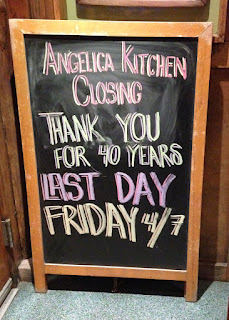 ANGELICA KITCHEN
CLOSING
THANK YOU
FOR 40 YEARS
LAST DAY
FRIDAY 4/7